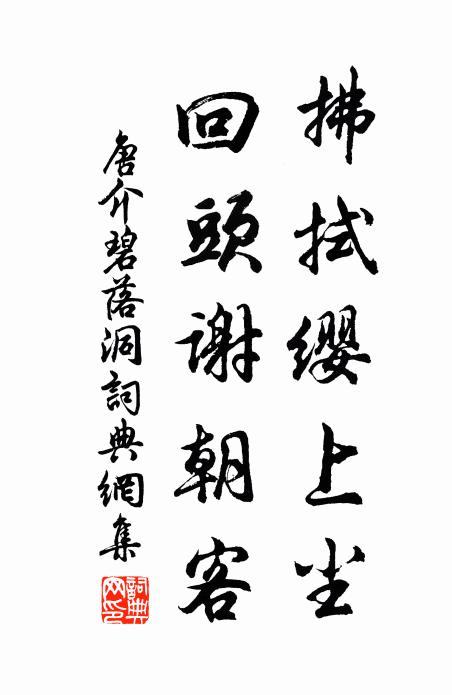 拂拭缨上尘
回頭谢朝客
唐介碧落洞詞典網集
詞典网印